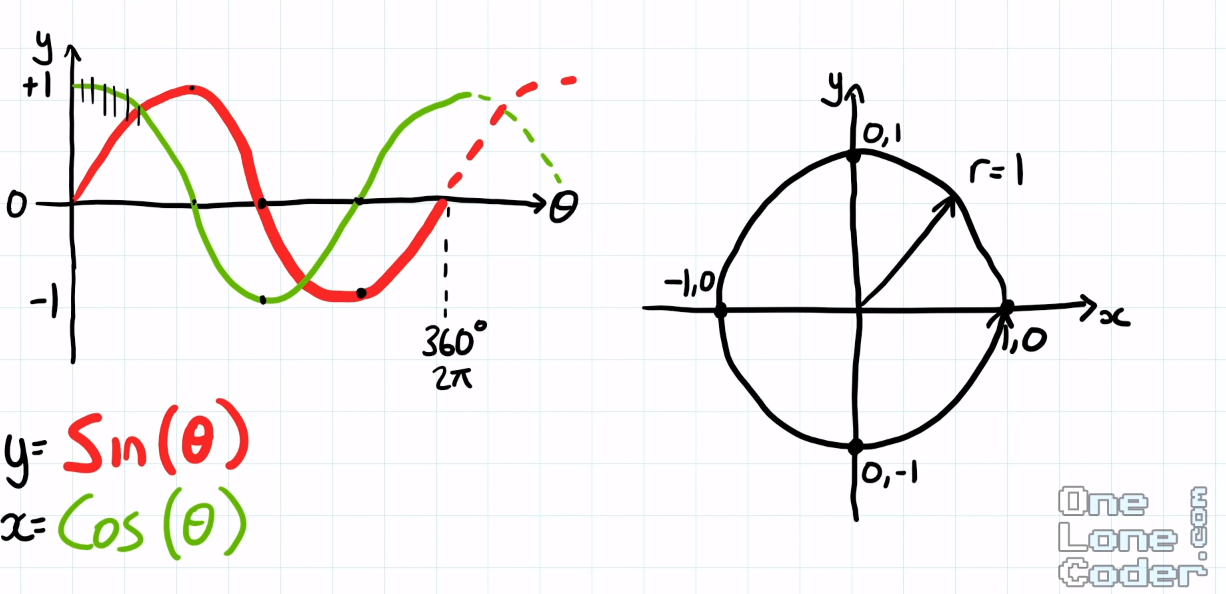 y
+1
0
θ
-1
360°
2π
y= Sin(θ)
x= Cos(θ)
y
0,1
r=1
-1,0
x
1,0
0,-1
One
Lone
Coder
.com